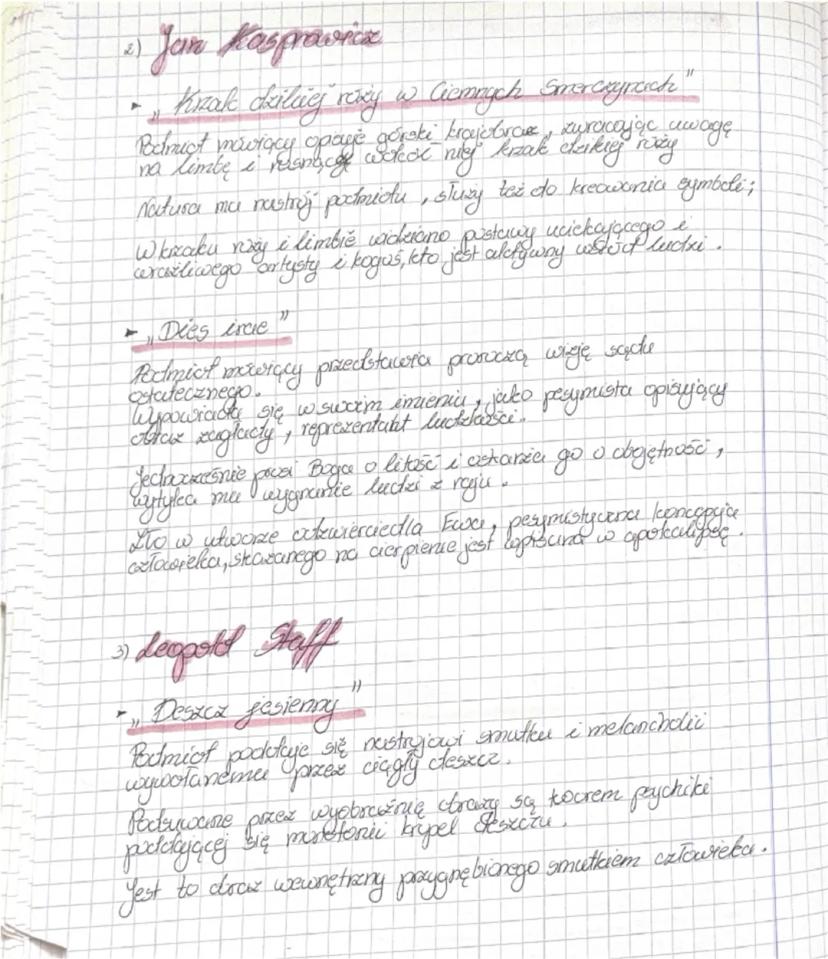 2) Jan Kasprowicz
► „Krzak dzikiej róży w Ciemnych Smreczynach"
Podmiot mówiący opisuje górski krajobraz, zwracając uwagę
na limbę i rosnący wokół niej krzak dzikiej róży
Natura ma nastrój podmiotu, służy też do kreowania symboli;
W krzaku róży i limbie widziano postawy uciekającego i
wrażliwego artysty i kogoś, kto jest aktywny wśród ludzi.
► „Dies irae"
Podmiot mówiący przedstawia proroczą wizję sądu
ostatecznego.
Wypowiada się w swoim imieniu, jako pesymista opisujący
obraz zagłady, reprezentant ludzkości.
Jednocześnie prosi Boga o litość i oskarża go o obojętność,
wytyka mu wygnanie ludzi z raju.
Zło w utworze odzwierciedla Ewa, pesymistyczna koncepcja
człowieka, skazanego na cierpienie jest wpisana w apokalipsę.
3) Leopold Staff
► „Deszcz jesienny"
Podmiot poddaje się nastrojowi smutku i melancholii
wywołanemu przez ciągły deszcz.
Podsuwane przez wyobraźnię obrazy są tworem psychiki
poddającej się monotonii kropel deszczu.
Jest to obraz wewnętrzny przygnębionego smutkiem człowieka.